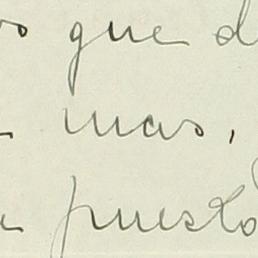 que
mas,
puesto